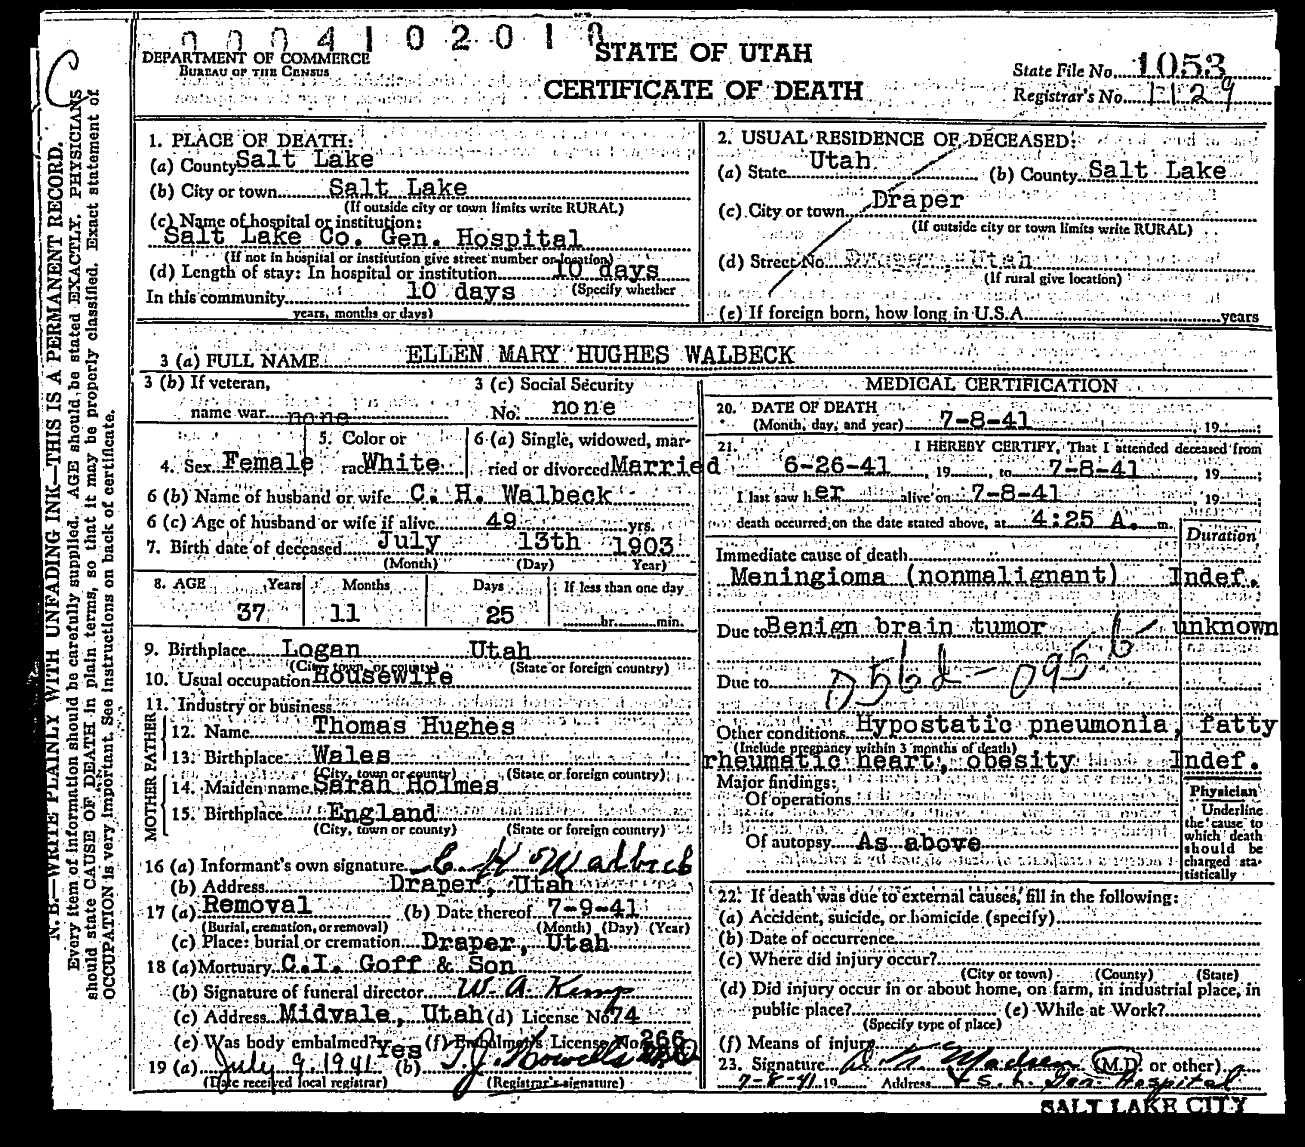 0004102018
DEPARTMENT OF COMMERCE
BUREAU OF THE CENSUS
STATE OF UTAH
CERTIFICATE OF DEATH
State File No. 1053
Registrar's No. 1129
C
N. B.—WRITE PLAINLY WITH UNFADING INK—THIS IS A PERMANENT RECORD.
Every item of information should be carefully supplied. AGE should be stated EXACTLY. PHYSICIANS
should state CAUSE OF DEATH in plain terms, so that it may be properly classified. Exact statement of
OCCUPATION is very important. See instructions on back of certificate.
1. PLACE OF DEATH:
(a) County Salt Lake
(b) City or town Salt Lake
(If outside city or town limits write RURAL)
(c) Name of hospital or institution:
Salt Lake Co. Gen. Hospital
(If not in hospital or institution give street number or location)
(d) Length of stay: In hospital or institution 10 days
(Specify whether
In this community 10 days
years, months or days)
2. USUAL RESIDENCE OF DECEASED:
(a) State Utah (b) County Salt Lake
(c) City or town Draper
(If outside city or town limits write RURAL)
(d) Street No. Draper, Utah
(If rural give location)
(e) If foreign born, how long in U.S.A. years
3 (a) FULL NAME ELLEN MARY HUGHES WALBECK
3 (b) If veteran,
name war none
3 (c) Social Security
No. none
4. Sex Female
5. Color or
race White
6 (a) Single, widowed, mar-
ried or divorced Married
6 (b) Name of husband or wife C. H. Walbeck
6 (c) Age of husband or wife if alive 49 yrs.
7. Birth date of deceased July 13th 1903
(Month) (Day) Year)
8. AGE Years Months Days If less than one day
37 11 25 hr. min.
9. Birthplace Logan Utah
(City, town, or county) (State or foreign country)
10. Usual occupation Housewife
11. Industry or business
FATHER
12. Name Thomas Hughes
13. Birthplace Wales
(City, town or county) (State or foreign country)
MOTHER
14. Maiden name Sarah Holmes
15. Birthplace England
(City, town or county) (State or foreign country)
16 (a) Informant's own signature C H Walbeck
(b) Address Draper, Utah
17 (a) Removal (b) Date thereof 7-9-41
(Burial, cremation, or removal) (Month) (Day) (Year)
(c) Place: burial or cremation Draper, Utah
18 (a) Mortuary C.I. Goff & Son
(b) Signature of funeral director W. A. Kemp
(c) Address Midvale, Utah (d) License No. 74
(e) Was body embalmed? Yes (f) Embalmer's License No. 266
19 (a) July 9, 1941 (b) T. J. Howells
(Date received local registrar) (Registrar's signature)
MEDICAL CERTIFICATION
20. DATE OF DEATH
(Month, day, and year) 7-8-41, 19 ;
21. I HEREBY CERTIFY, That I attended deceased from
6-26-41, 19 , to 7-8-41, 19 ;
I last saw her alive on 7-8-41, 19 ;
death occurred on the date stated above, at 4:25 A. m.
Duration
Immediate cause of death
Meningioma (nonmalignant) Indef.
Due to Benign brain tumor unknown
Due to
Other conditions Hypostatic pneumonia, fatty
(Include pregnancy within 3 months of death)
rheumatic heart, obesity Indef.
Major findings:
Of operations
Of autopsy As above
Physician
Underline
the cause to
which death
should be
charged sta-
tistically
22. If death was due to external causes, fill in the following:
(a) Accident, suicide, or homicide (specify)
(b) Date of occurrence
(c) Where did injury occur?
(City or town) (County) (State)
(d) Did injury occur in or about home, on farm, in industrial place, in
public place? (e) While at Work?
(Specify type of place)
(f) Means of injury
23. Signature Madsen (M.D. or other)
7-8-41 19 Address S. L. Gen. Hospital
SALT LAKE CITY